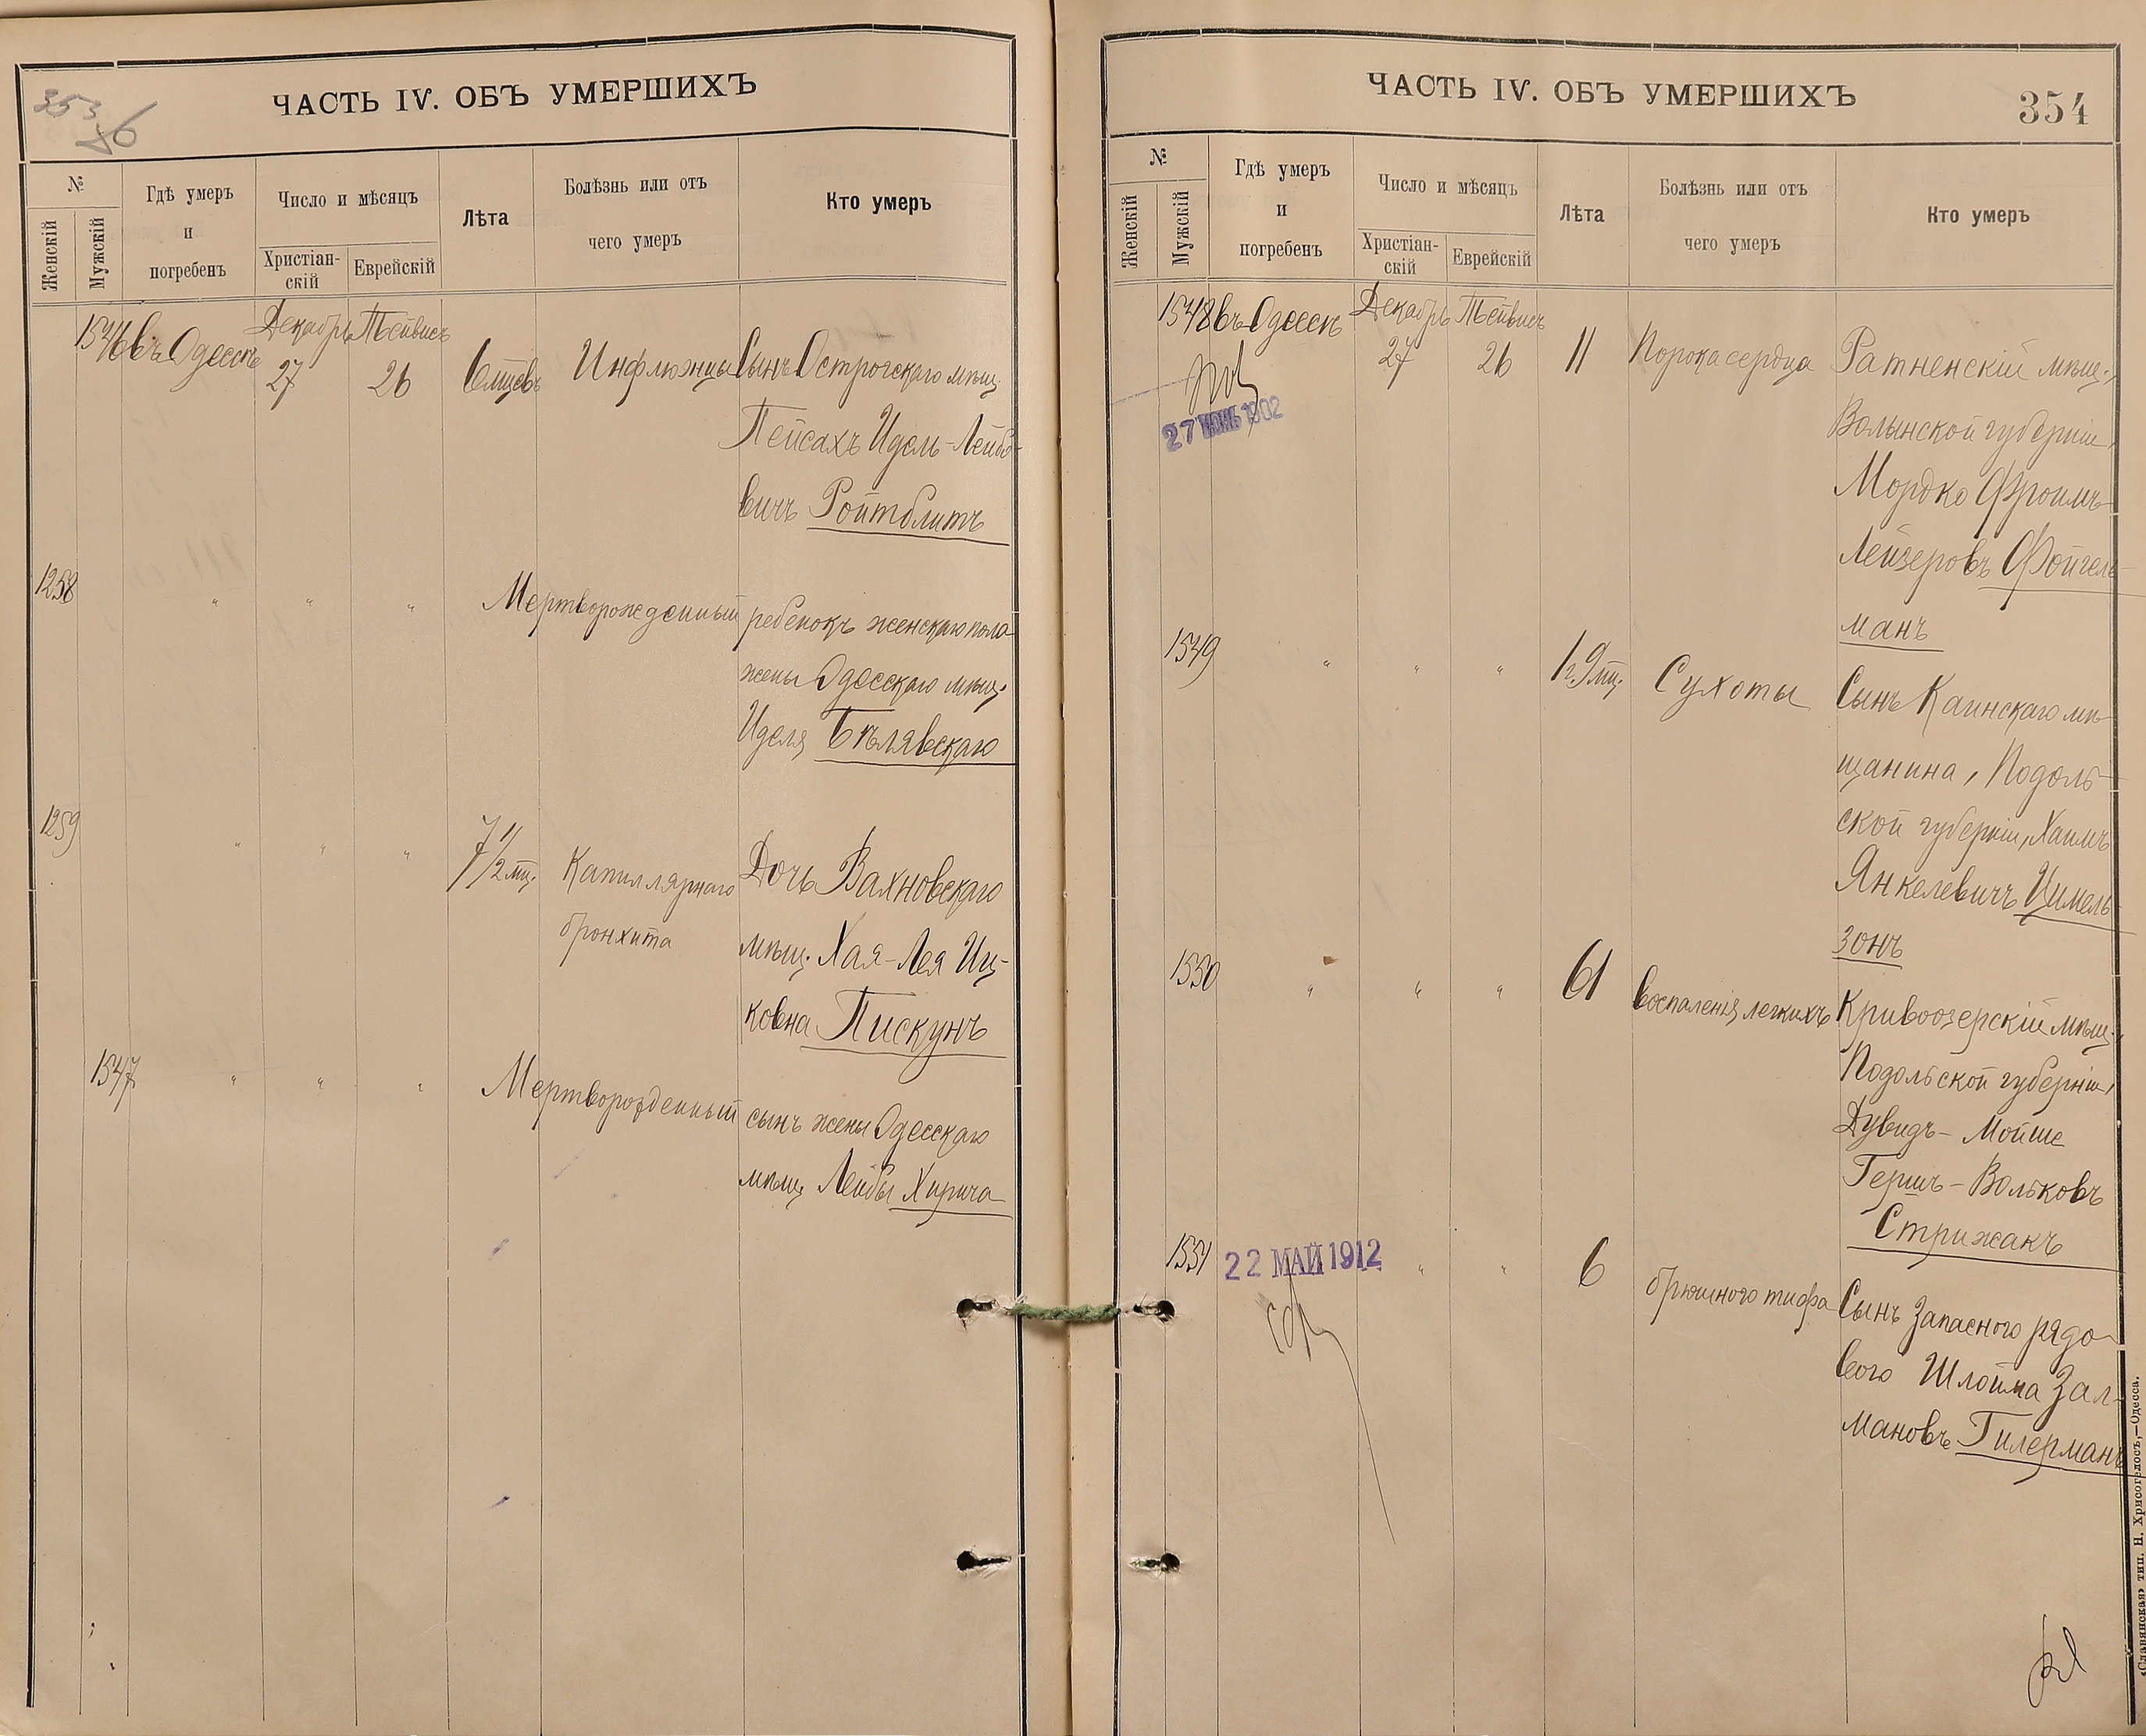 353
ЧАСТЬ IV. ОБЪ УМЕРШИХЪ
№
Женскій
Мужскій
Гдѣ умеръ
и
погребенъ
Число и мѣсяцъ
Христіан-
скій
Еврейскій
Лѣта
Болѣзнь или отъ
чего умеръ
Кто умеръ
1546 въ Одессѣ Декабрь 27 Тейвисъ 26 6 мцевъ Инфлюэнцы Сынъ Острогскаго мѣщ.
Пейсахъ Идель-Лейбо-
вичъ Ройтблитъ
1258 " " " Мертворожденный ребенокъ женскаго пола
жены Одесскаго мѣщ.
Иделя Бѣлявскаго
1259 " " " 7 1/2 мц. Капиллярнаго Дочь Вахновскаго
бронхита мѣщ. Хая-Лея Иц-
ковна Пискунъ
1547 " " " Мертворожденный сынъ жены Одесскаго
мѣщ Лейбы Хирича
ЧАСТЬ IV. ОБЪ УМЕРШИХЪ
354
№
Женскій
Мужскій
Гдѣ умеръ
и
погребенъ
Число и мѣсяцъ
Христіан-
скій
Еврейскій
Лѣта
Болѣзнь или отъ
чего умеръ
Кто умеръ
1548 въ Одессѣ Декабрь 27 Тейвисъ 26 11 Порока сердца Ратненскій мѣщ.,
27 1902
Волынской губерніи,
Мордко Фроимъ
Лейзеровъ Фойгель-
манъ
1549 " " " 1 г. 9 мц. Сухоты Сынъ Каинскаго мѣ-
щанина, Подоль-
ской губерніи, Хаимъ
Янкелевичъ Цимель-
зонъ
1550 " " " 61 воспаленія легкихъ Кривоозерскій мѣщ.,
Подольской губерніи,
Дувидъ-Мойше
Гершъ-Вольковъ
Стрижакъ
1551 22 МАЙ 1912 " " 6 брюшного тифа Сынъ Запасного рядо-
вого Шлойма Зал-
мановъ Гилерманъ
«Славянская» тип. Н. Хрисогелосъ,—Одесса.